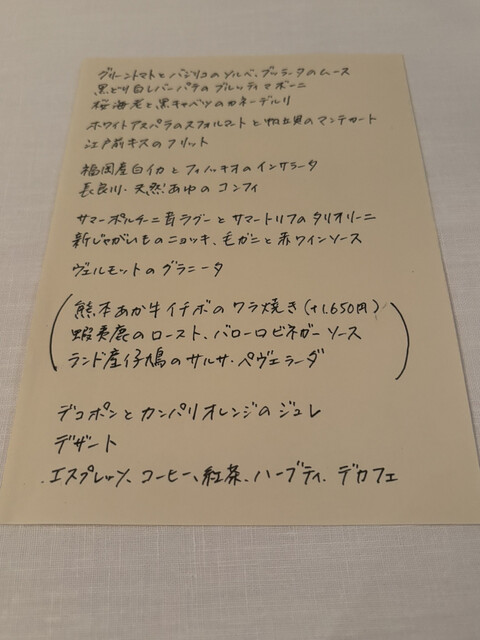 グリーントマトとバジリコのソルベ、ブッラータのムース
黒どり白レバーパテのブルッティマボーニ
桜海老と黒キャベツのカネーデルリ
ホワイトアスパラのスフォルマートと帆立貝のマンテカート
江戸前キスのフリット
福岡産白イカとフィノッキオのインサラータ
長良川・天然あゆのコンフィ
サマーポルチーニ茸ラグーとサマートリフのタリオリーニ
新じゃがいものニョッキ、毛ガニと赤ワインソース
ヴェルモットのグラニータ
熊本あか牛イチボのワラ焼き(+1.650円)
蝦夷鹿のロースト、バローロビネガーソース
ランド産仔鳩のサルサ・ペヴェラーダ
デコポンとカンパリオレンジのジュレ
デザート
エスプレッソ、コーヒー、紅茶、ハーブティ、デカフェ